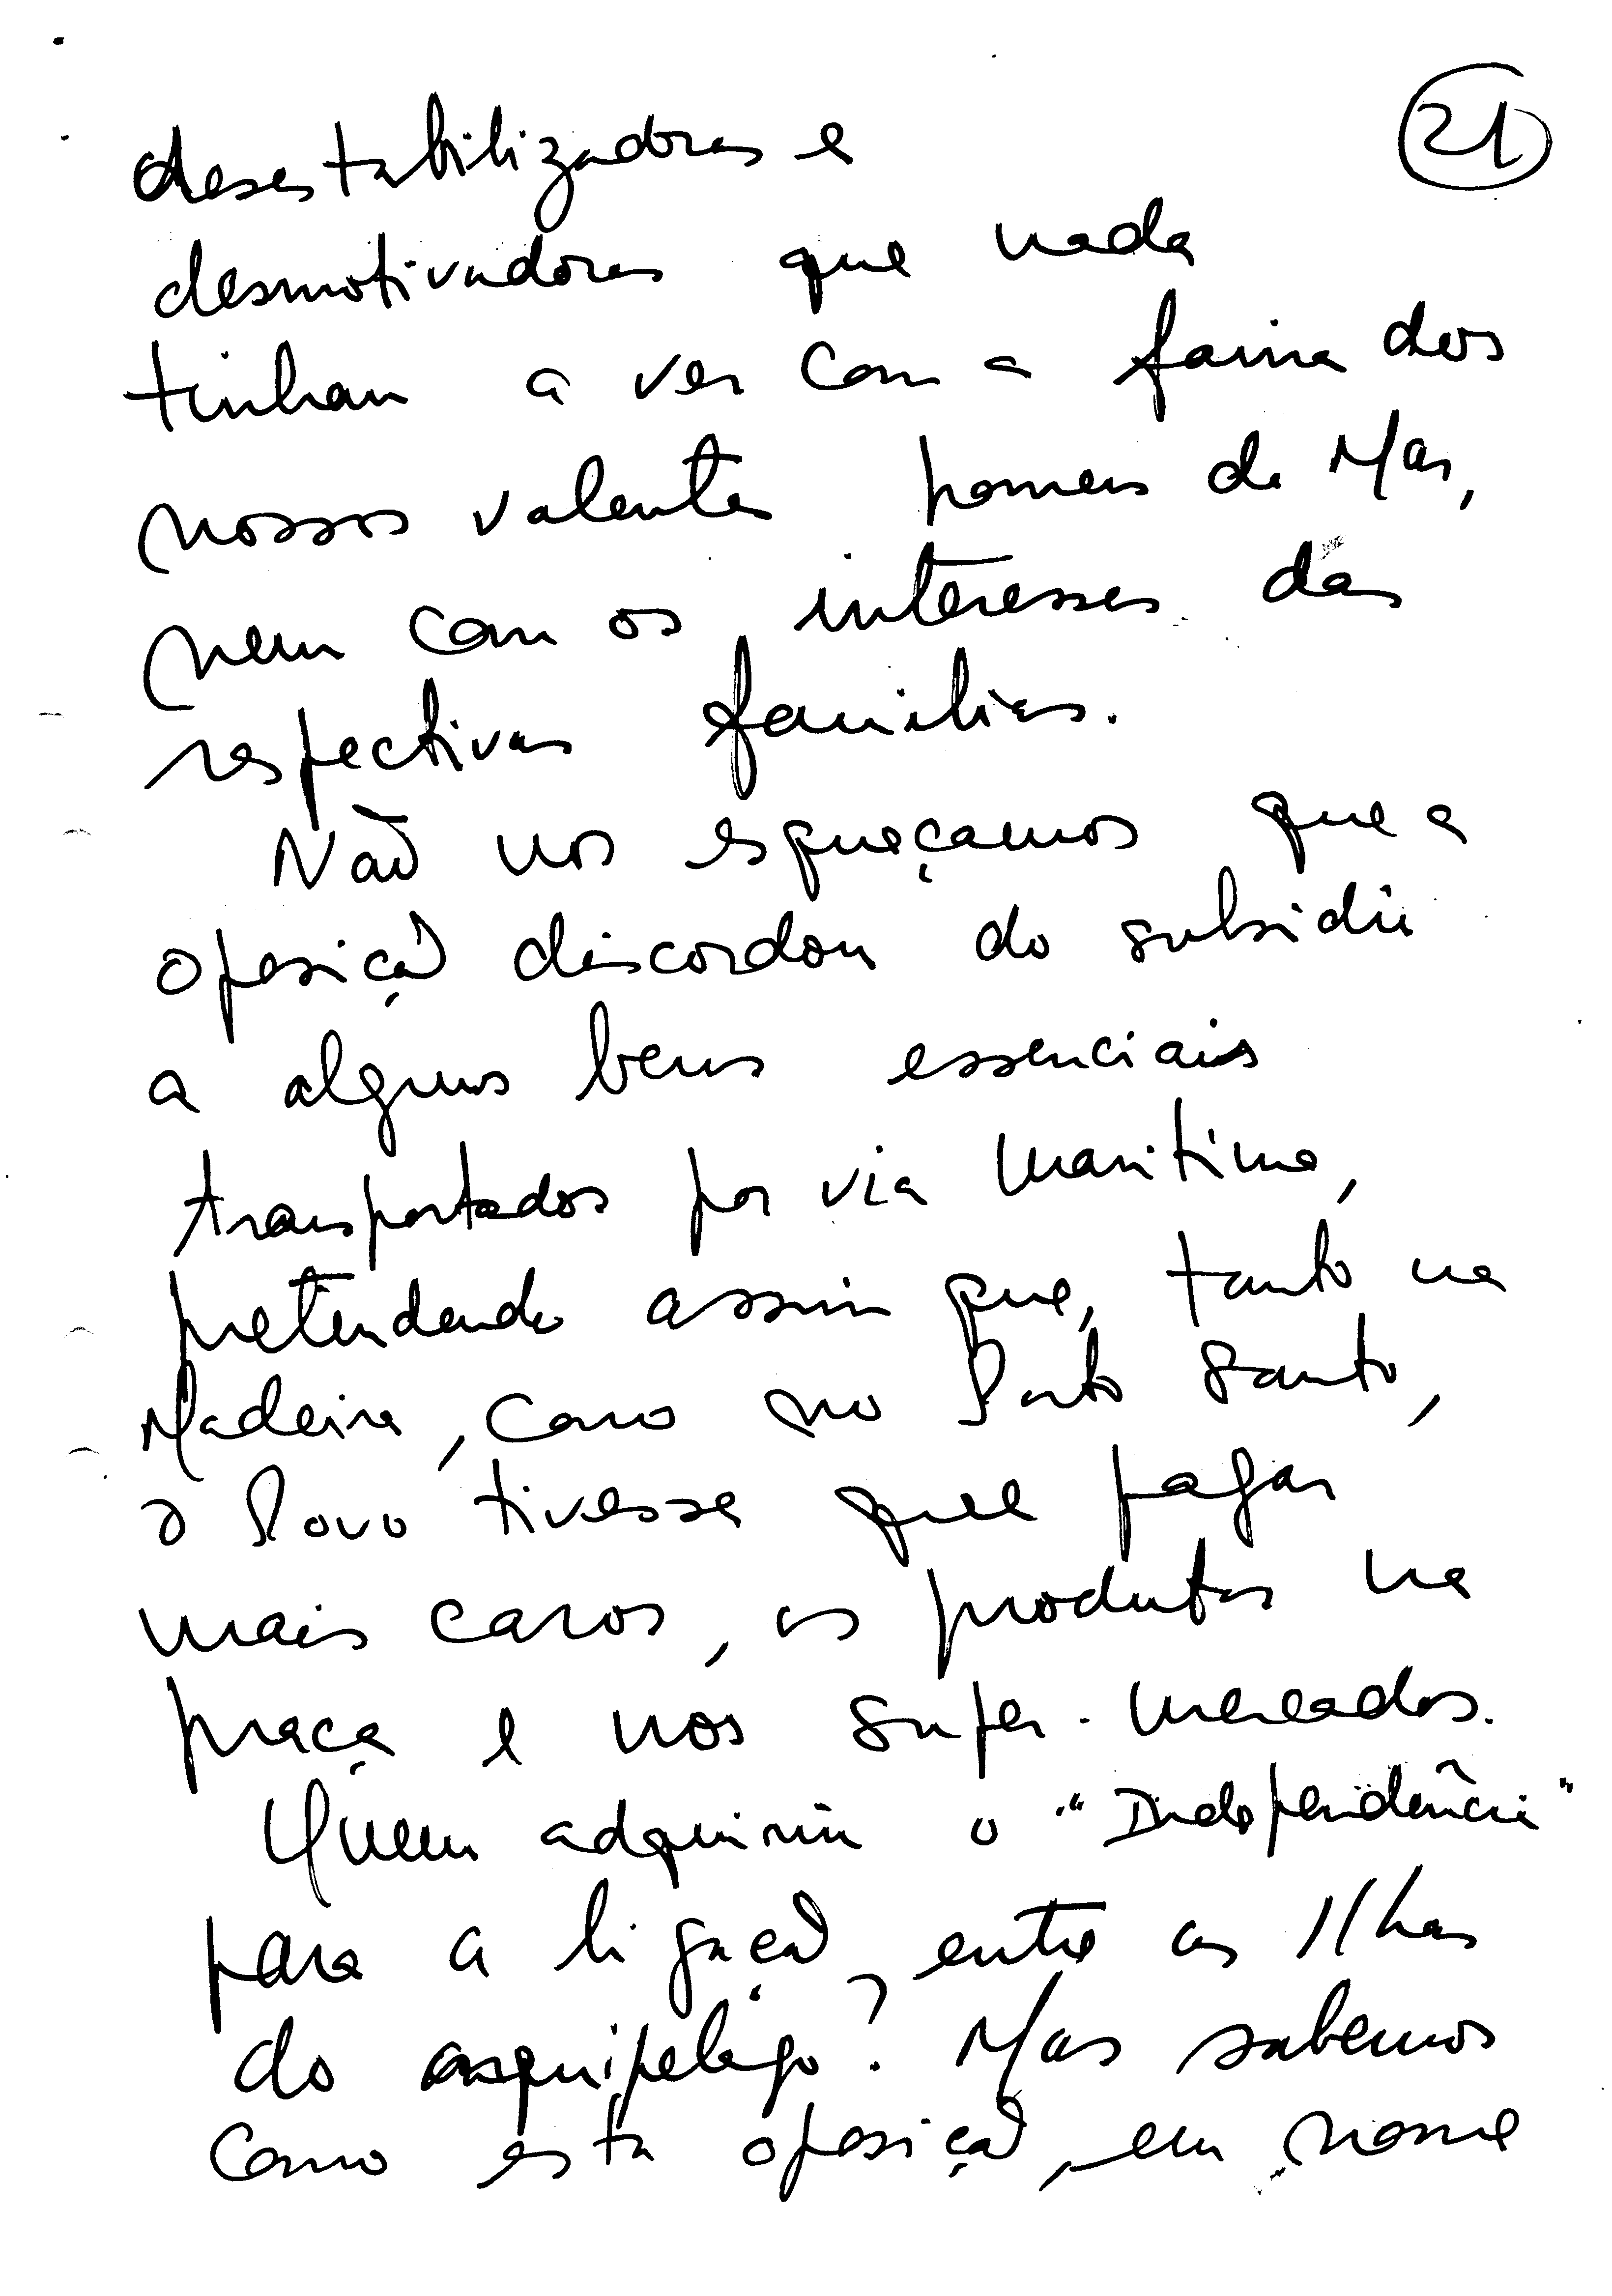 21
desestabilizadoras e
desmotivadoras que nada
tinham a ver com a faina dos
nossos valentes homens do Mar,
nem com os interesses das
respectivas famílias.
Não nos esqueçamos que a
oposição discordou do subsídio
a alguns bens essenciais
transportados por via marítima,
pretendendo assim que, tanto na
Madeira, como no Porto Santo,
o Povo tivesse que pagar
mais caros, os produtos na
praça e nos super-mercados.
Quem adquiriu o "Independência"
para a ligação entre as Ilhas
do arquipélago? Mas sabemos
como esta oposição, em nome